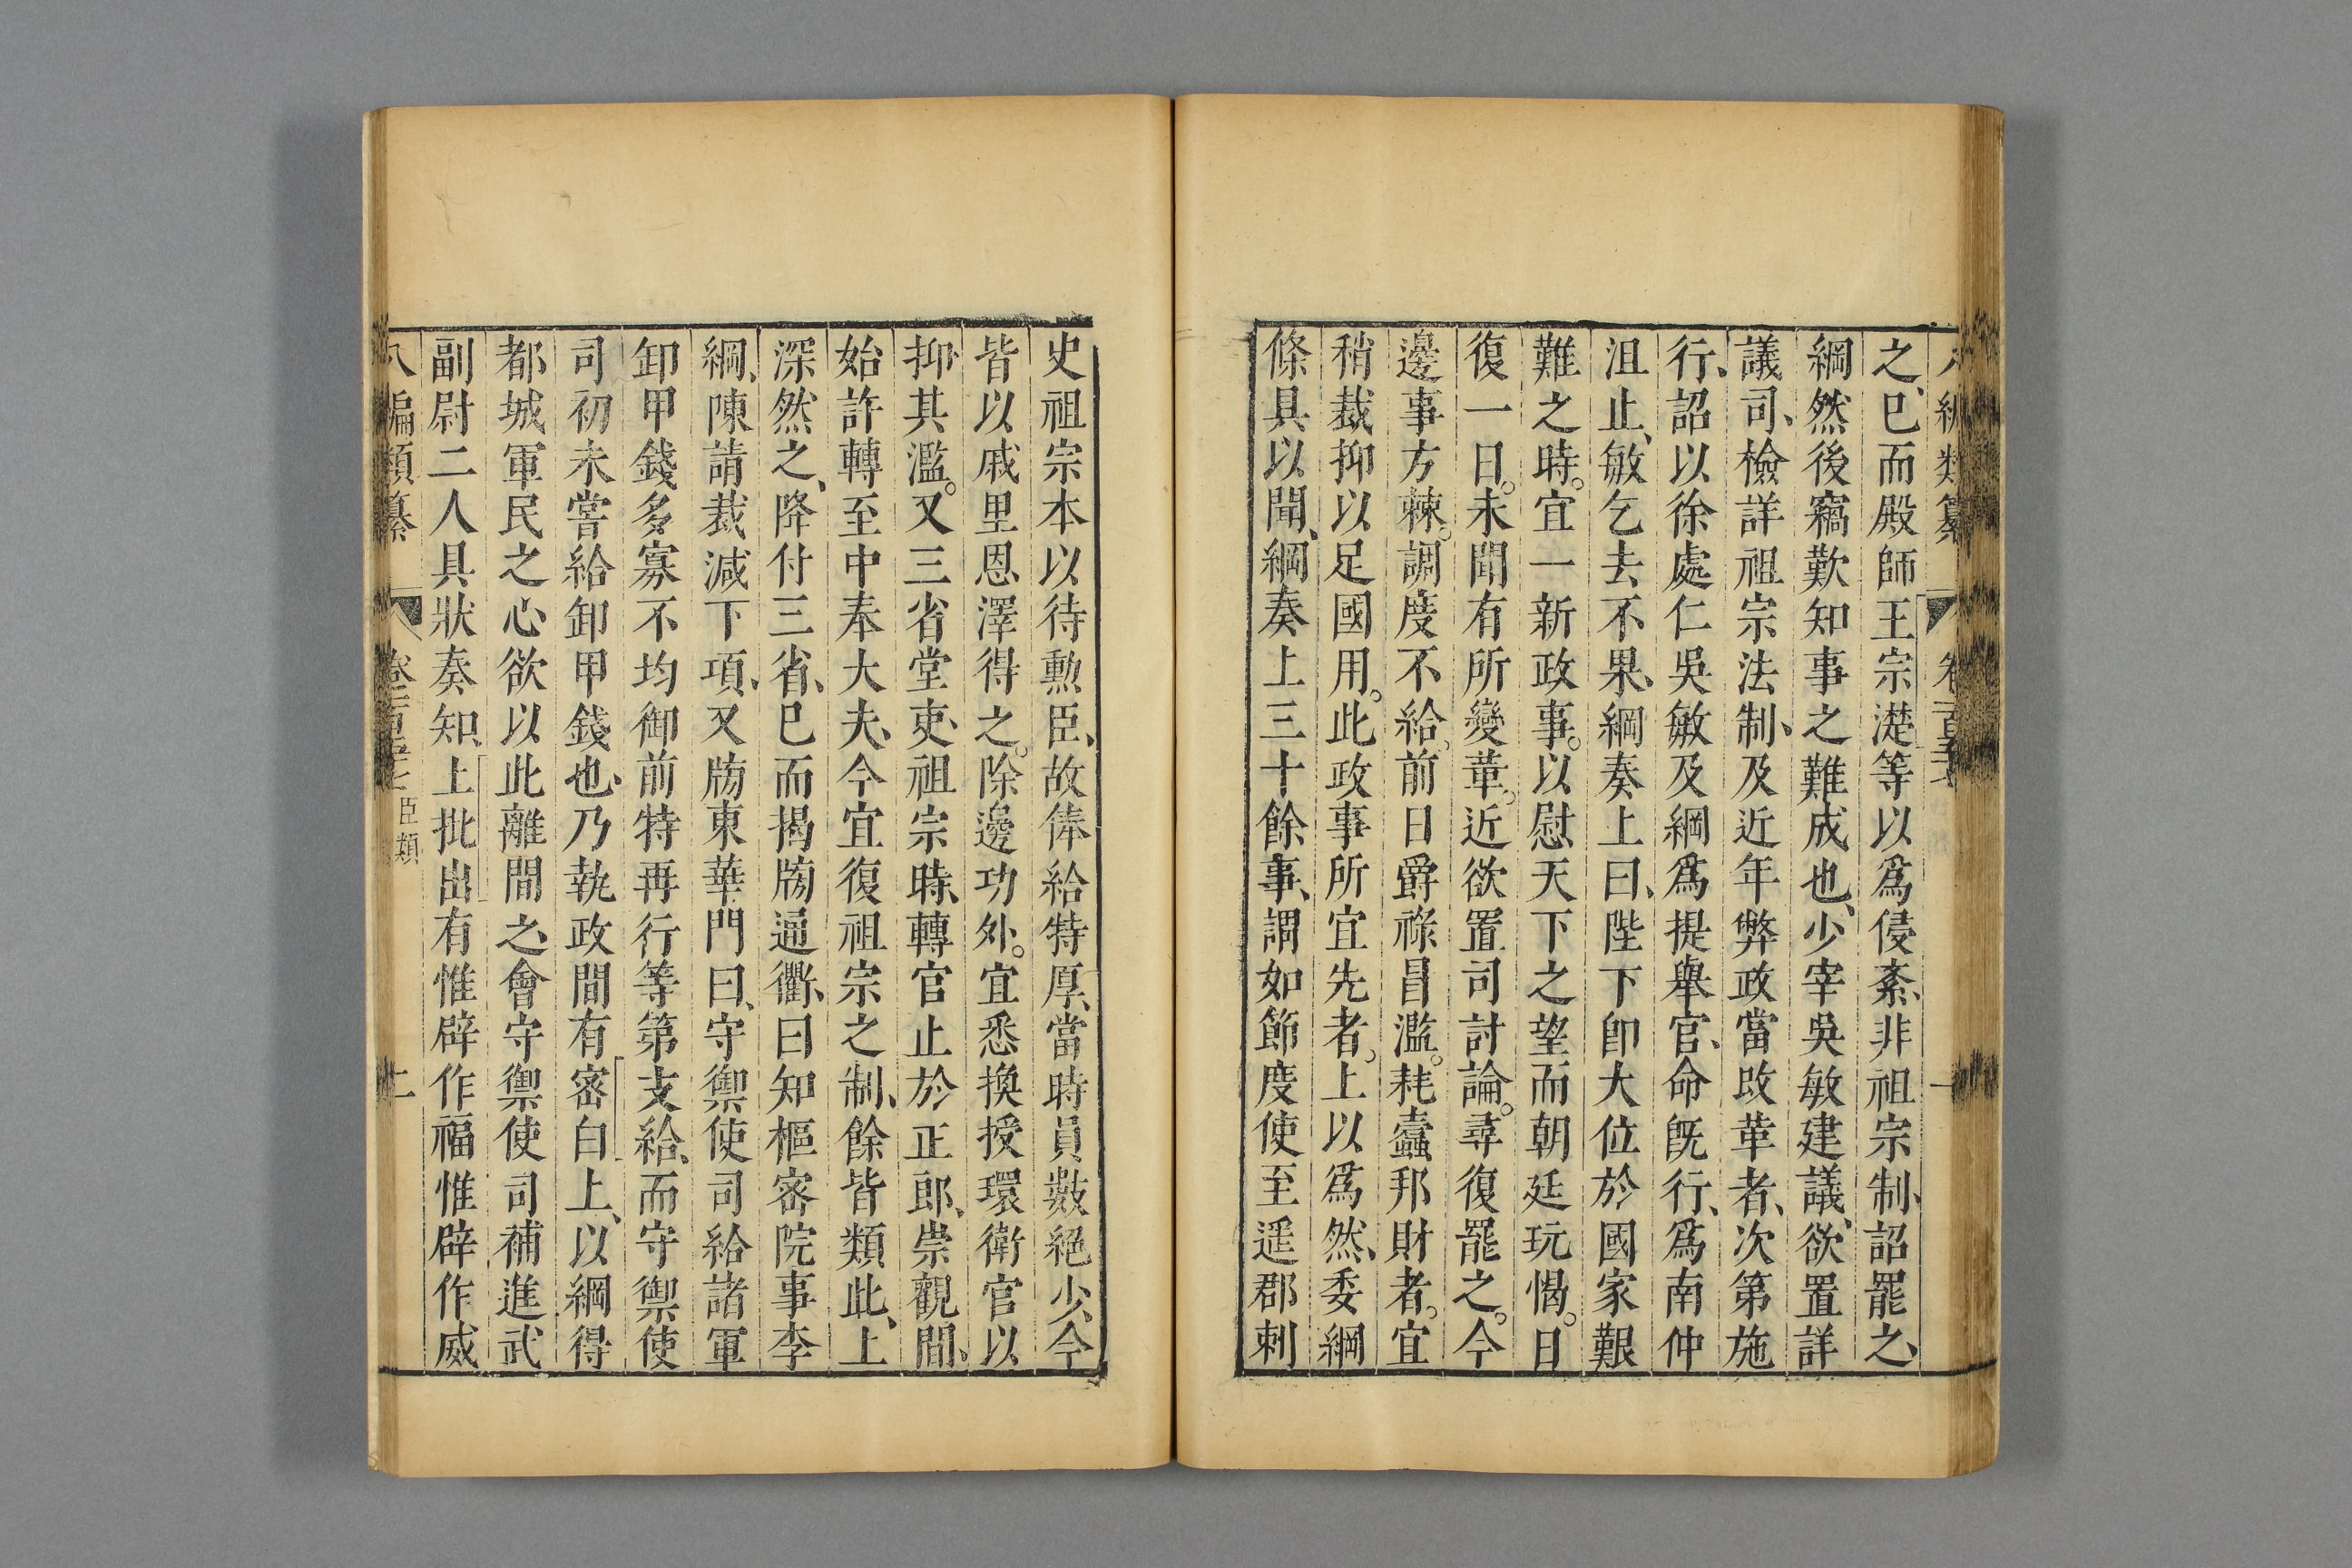 八編類纂 卷一百五十七 一
之、已而殿師王宗濋等以爲侵紊、非祖宗制、詔罷之、
綱然後竊歎知事之難成也、少宰吳敏建議、欲置詳
議司、檢詳祖宗法制、及近年弊政當改革者、次第施
行、詔以徐處仁吳敏及綱爲提舉官、命旣行、爲南仲
沮止、敏乞去不果、綱奏上曰、陛下卽大位於國家艱
難之時。宜一新政事。以慰天下之望而朝廷玩愒。日
復一日。未聞有所變革。近欲置司討論。尋復罷之。今
邊事方棘。調度不給。前日爵祿冒濫。耗蠹邦財者。宜
稍裁抑以足國用。此政事所宜先者。上以爲然、委綱
條具以聞、綱奏上三十餘事、謂如節度使至遥郡刺
史祖宗本以待勲臣、故俸給特厚、當時員數絕少、今
皆以戚里恩澤得之。除邊功外。宜悉換授環衛官以
抑其濫。又三省堂吏、祖宗時、轉官止於正郎、崇觀間、
始許轉至中奉大夫、今宜復祖宗之制、餘皆類此、上
深然之、降付三省、已而揭牓通衢、曰知樞密院事李
綱、陳請裁減下項、又牓東華門曰、守禦使司給諸軍
卸甲錢多寡不均御前特再行等第支給、而守禦使
司初未嘗給卸甲錢也、乃執政間有密白上、以綱得
都城軍民之心、欲以此離間之、會守禦使司補進武
副尉二人具狀奏知、上批出有惟辟作福惟辟作威
八編類纂 卷一百五十七 臣類 二